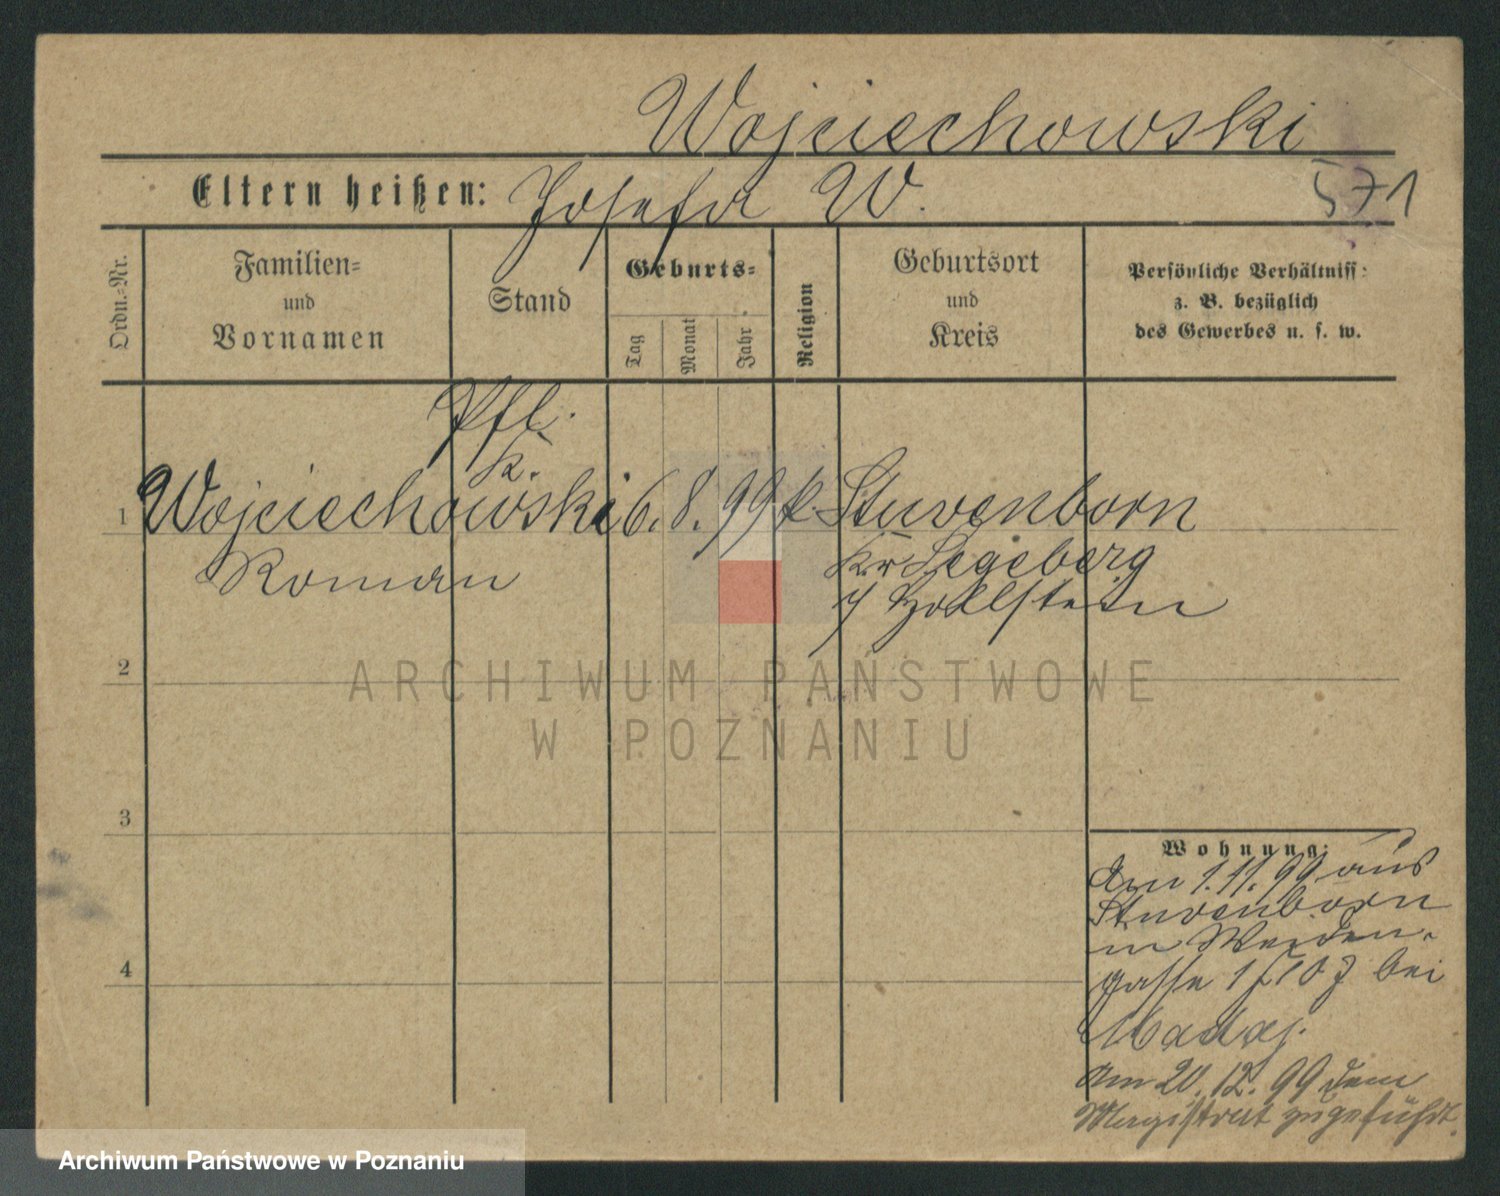 Wojciechowski
Eltern heißen: Josefa W.
571
Ordn.-Nr.
Familien-
und
Vornamen
Stand
Geburts-
Tag
Monat
Jahr
Religion
Geburtsort
und
Kreis
Persönliche Verhältniss:
z. B. bezüglich
des Gewerbes u. s. w.
Pfl.
K.
1 Wojciechowski 6. 8. 99 k. Stuvenborn
Roman
Kr Segeberg
Hollstein
2
3
4
Wohnung:
Am 1. 11. 99 aus
Stuvenborn
in Weiden-
gasse 1 bei
Madaj.
Am 20. 12. 99 dem
Magistrat zugeführt.
ARCHIWUM PAŃSTWOWE
W POZNANIU
Archiwum Państwowe w Poznaniu